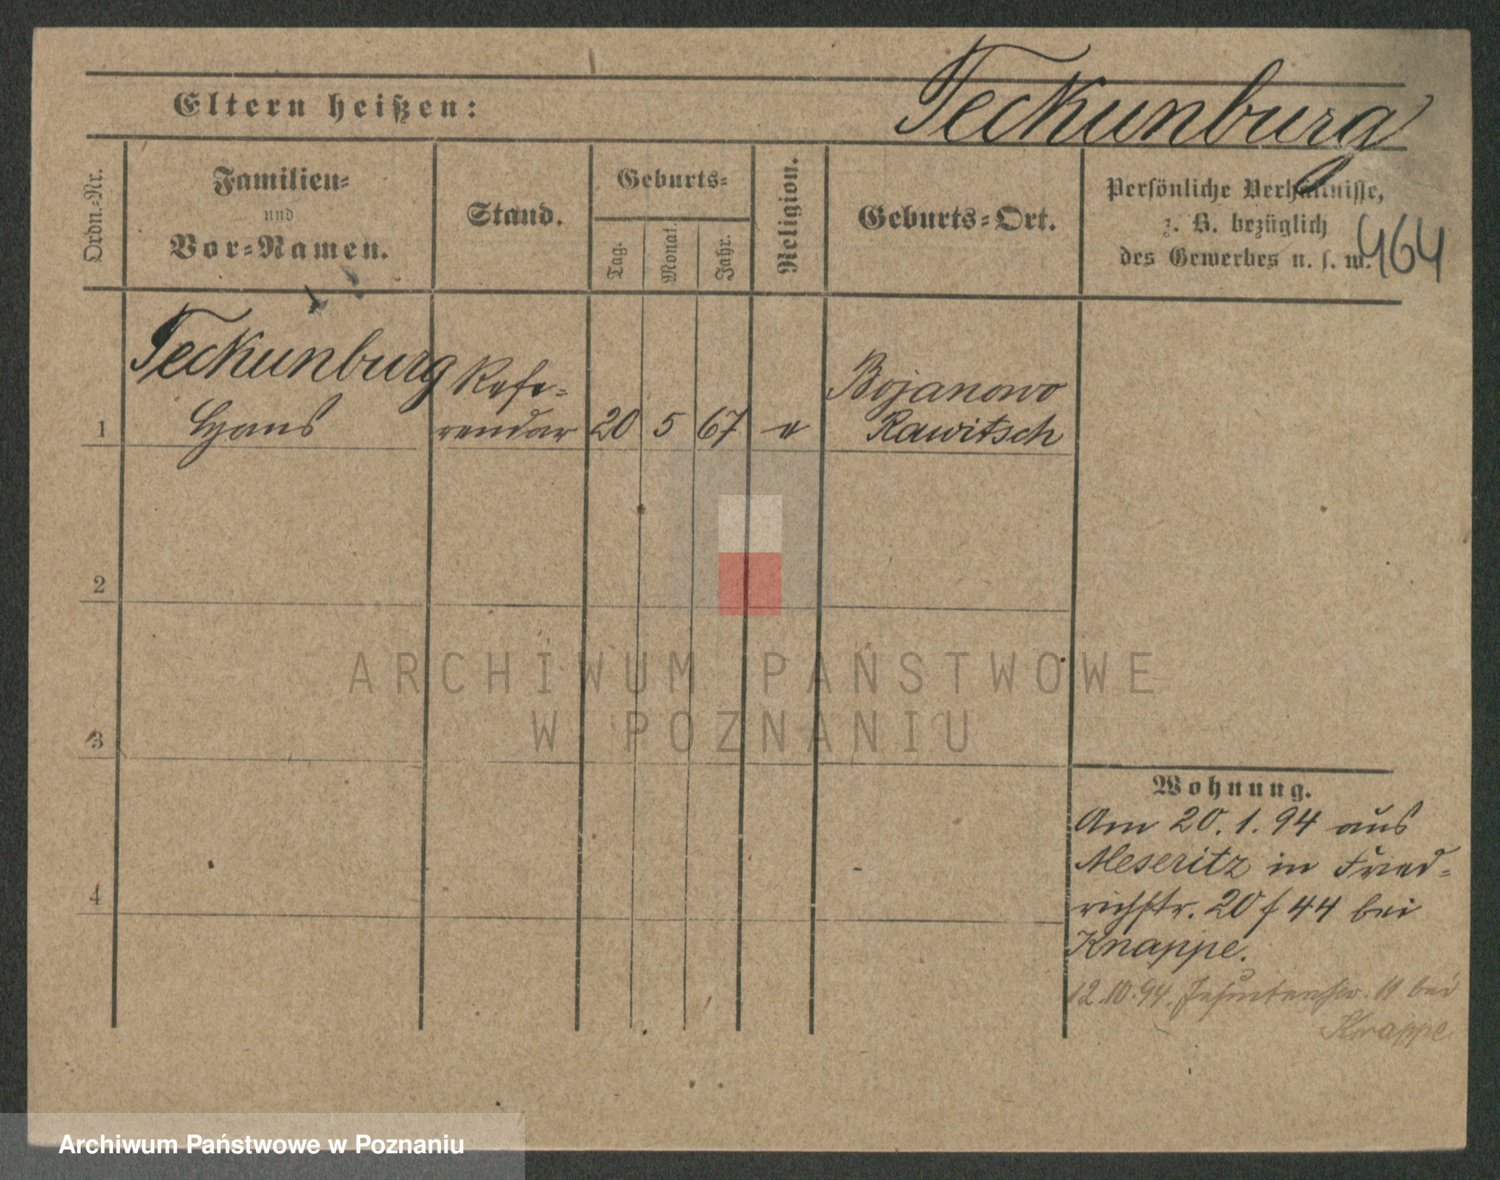 Teckunburg
Eltern heißen:
Ordn.-Nr.
Familien-
und
Vor-Namen.
Stand.
Geburts-
Tag.
Monat.
Jahr.
Religion.
Geburts-Ort.
Persönliche Verhältnisse,
z. B. bezüglich
des Gewerbes u. s. w.
464
Teckunburg
Hans
Refe-
rendar
1
20
5
67
e
Bojanowo
Rawitsch
2
3
4
ARCHIWUM PAŃSTWOWE
W POZNANIU
Wohnung.
Am 20.1.94 aus
Meseritz in Fried-
richstr. 20 f 44 bei
Knappe.
12.10.94. Jesuitenstr. 11 bei
Knappe
Archiwum Państwowe w Poznaniu